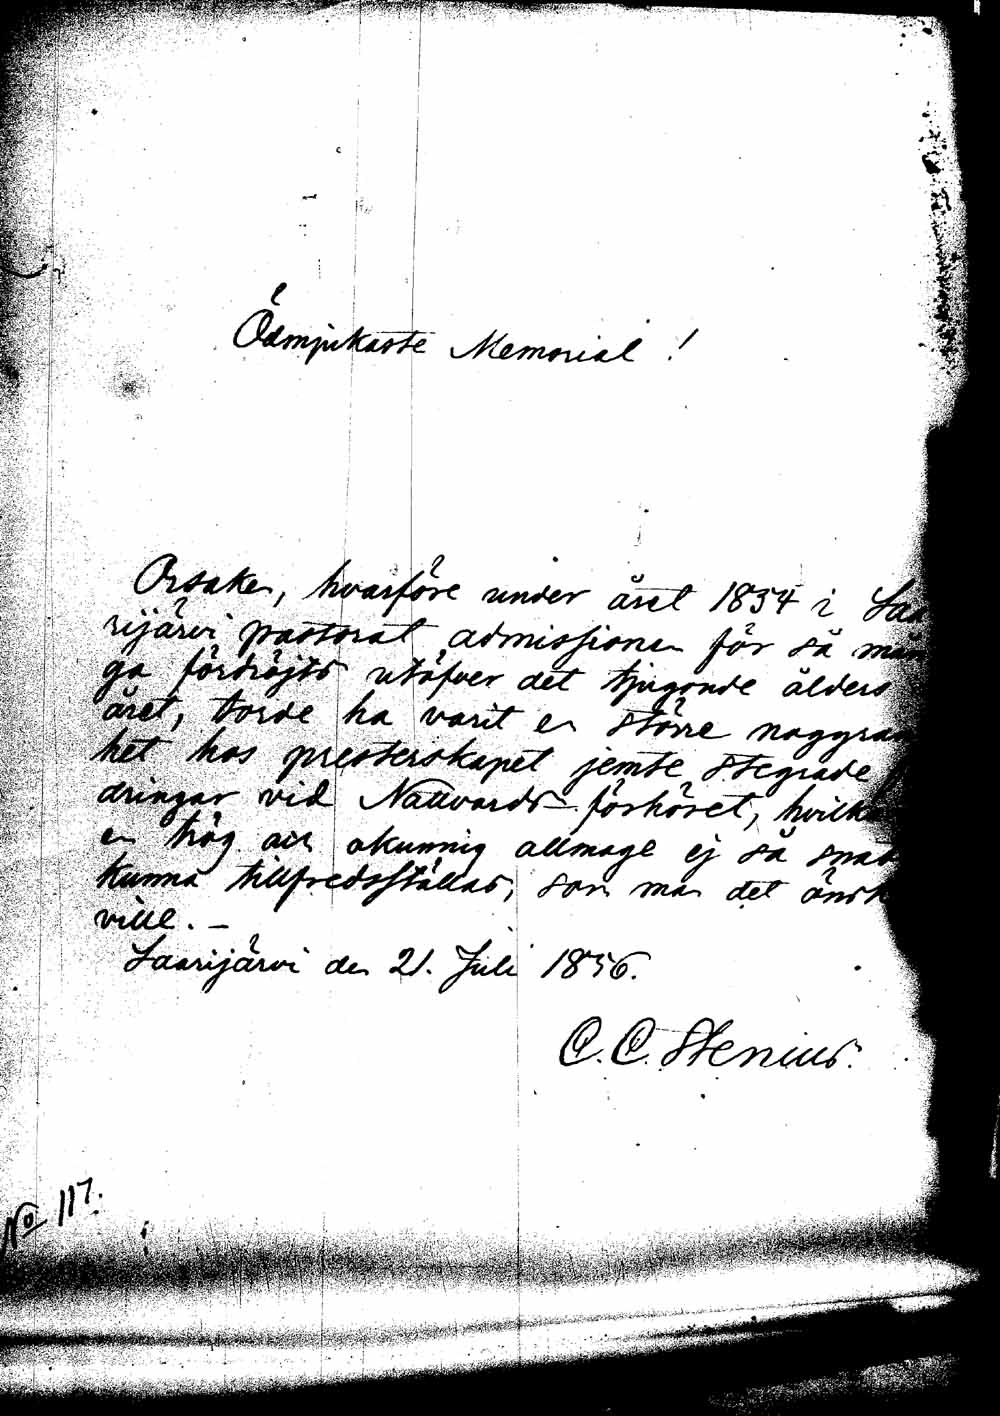 Ödmjukaste Memorial !
Orsaken, hvarföre under året 1834 i Saa
rijärvi pastorat admissionen för så mån
ga fördröjts utöfver det tjugonde ålders
året, torde ha varit en större noggran
het hos presterskapet jemte stegrade
dringar vid Nattvards-förhöret, hvilka
en trög och okunnig allmoge ej så snab
kunna tillfredsställas, som man det önsk
ville. –
Saarijärvi den 21. Juli 1836.
C. C. Stenius.
No 117.